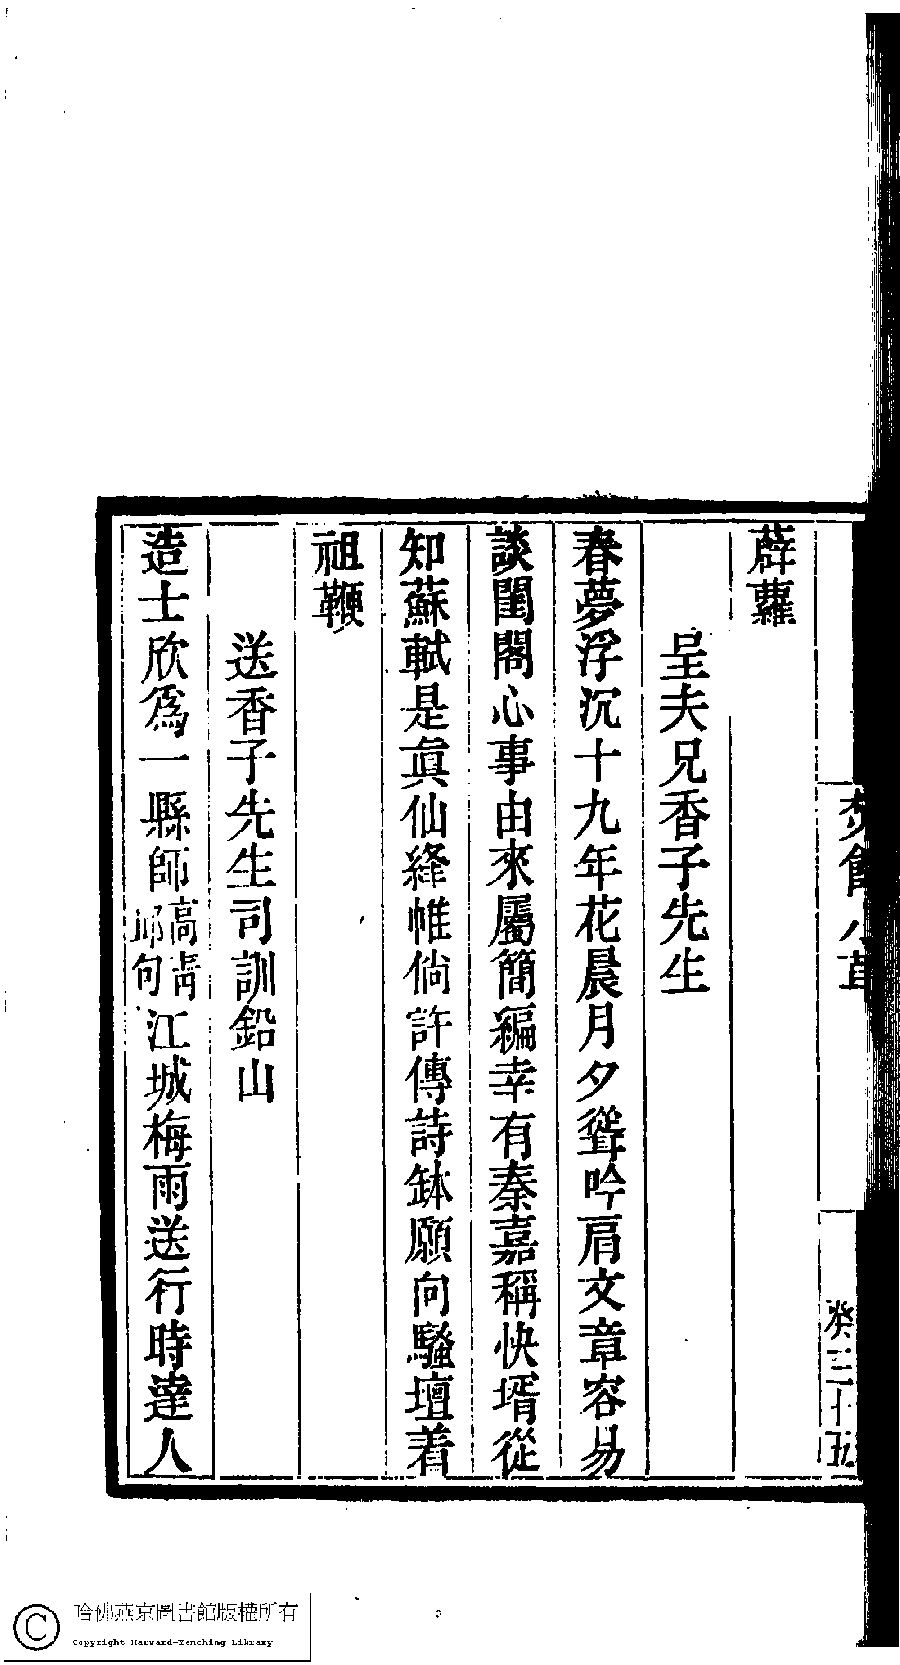 癸三十五
薜蘿
呈夫兄香子先生
春夢浮沉十九年花晨月夕聳吟肩文章容易
談閨閣心事由來屬簡編幸有秦嘉稱快壻從
知蘇軾是眞仙絳帷倘許傳詩鉢願向騷壇着
祖鞭
送香子先生司訓鉛山
造士欣爲一縣師高靑邱句江城梅雨送行時達人
哈佛燕京圖書館版權所有
Copyright Harvard-Yenching Library